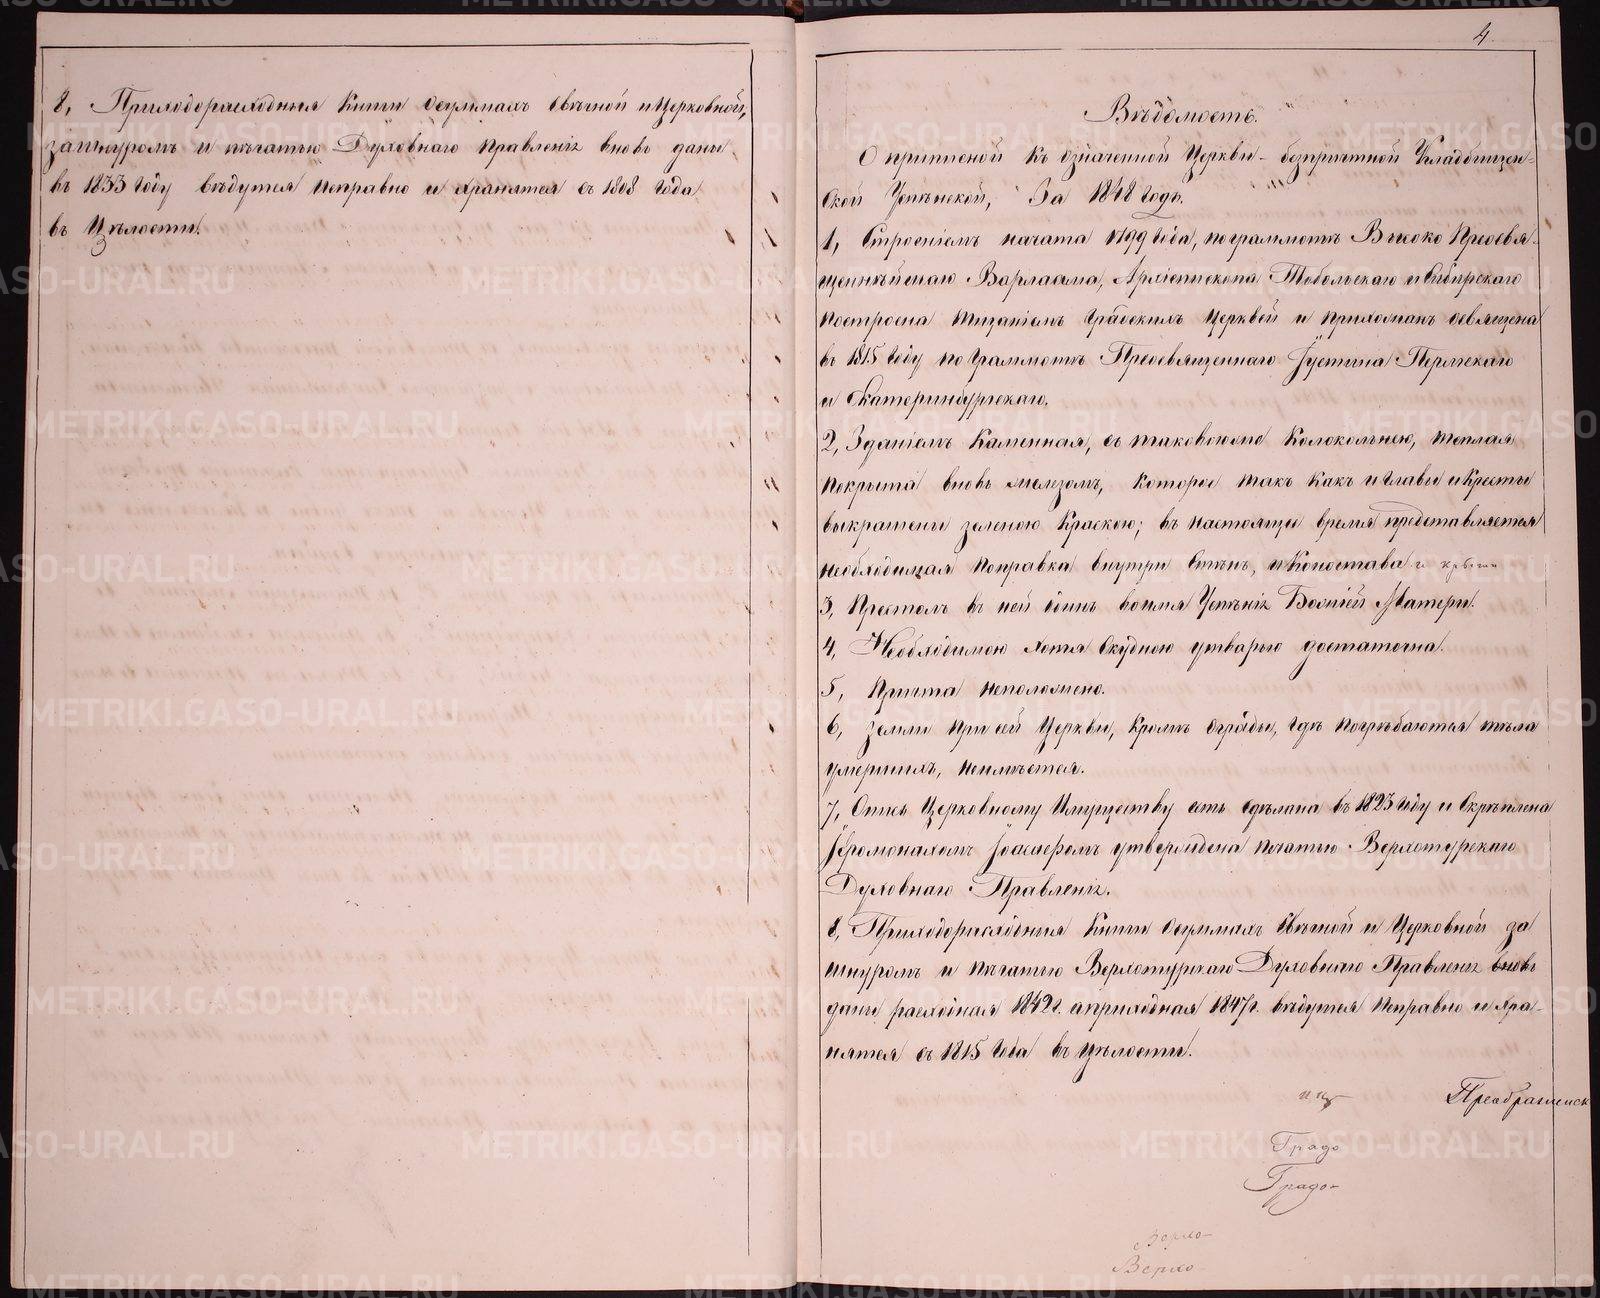 8, Приходорасходныя книги осуммахъ свѣчной и Церковной,
зашнуромъ и печатью Духовнаго Правленія вновь даны
въ 1833 году вѣдутся исправно и хранятся съ 1808 года
въ Цѣлости.
4.
Вѣдомость.
О приписной къ означенной Церкви - безпричтной Кладбищен-
ской Успѣнской, За 1848 годъ.
1, Строеніемъ начата 1799 года, пограммотѣ Высоко Преосвя-
щеннѣйшаго Варлаама, Архіепископа Тобольскаго и Сибирскаго
построена тщаніемъ Градскихъ Церквей и прихожанъ освящена
въ 1815 году по граммотѣ Преосвященнаго Іустина Пермскаго
и Екатеринбургскаго.
2, Зданіемъ Каменная, съ таковоюже Колокольнею, теплая
покрыта вновь железомъ, которое такъ какъ и главы и Кресты
выкрашены зеленою Краскою; въ настояще время представляется
необходимая поправка внутри Стѣнъ, иконостава и крыши
3, Престолъ въ ней одинъ воимя Успѣнія Божіей Матери.
4, Необходимою хотя скудною утварью достаточна.
5, Причта неположено.
6, Земли при сей Церкви, Кромѣ ограды, гдѣ погрѣбаются тѣла
умершихъ, неимѣется.
7, Опись Церковному Имуществу есть сдѣлана въ 1823 году и Скрѣплена
Іеромонахомъ Іоасафомъ утверждена печатью Верхотурскаго
Духовнаго Правленія.
8, Приходорасходныя Книги осуммахъ Свѣчной и Церковной за
шнуромъ и печатью Верхотурскаго Духовнаго Правленія вновь
даны расходная 1842 г. априходная 1847 г. вѣдутся исправно и хра-
нятся съ 1815 года въ цѣлости.
Преображенск
Градо
Градо-
Верхо-
Верхо-
METRIKI.GASO-URAL.RU